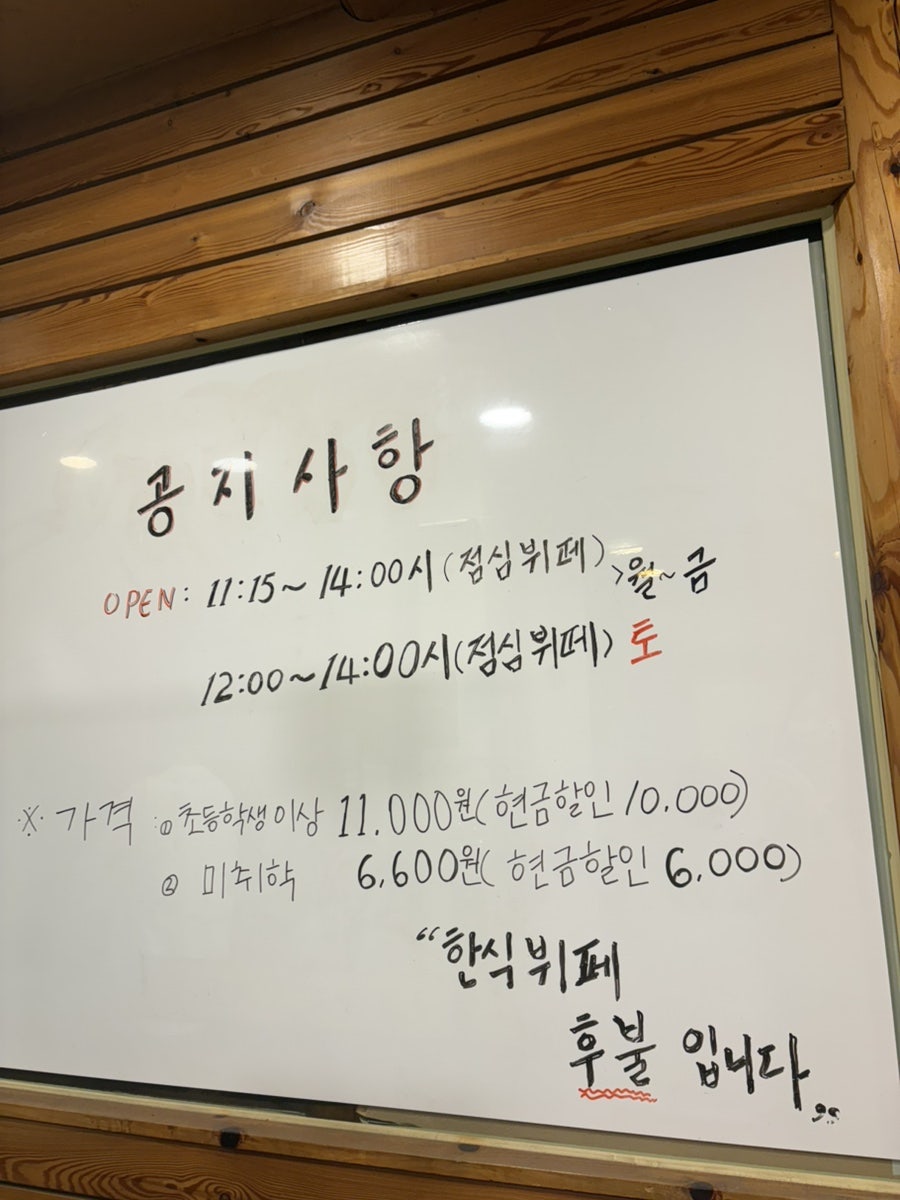 공지사항
OPEN: 11:15~14:00시(점심뷔페)>월~금
12:00~14:00시(점심뷔페) 토
※ 가격 ① 초등학생이상 11.000원(현금할인 10.000)
② 미취학 6,600원(현금할인 6.000)
"한식뷔페
후불 입니다"